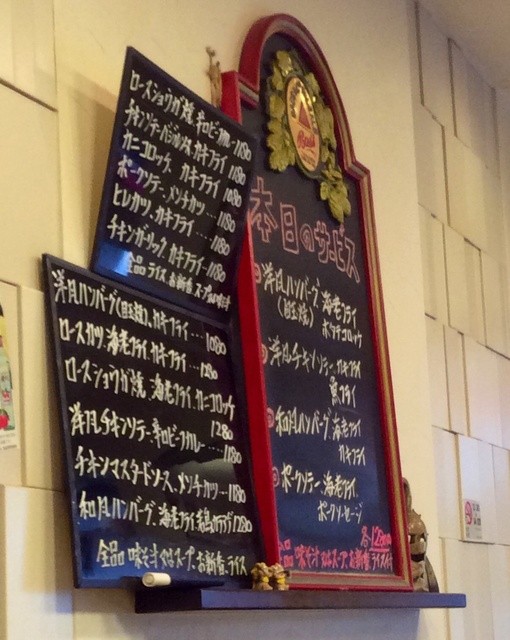 ロースショウガ焼、辛口ビーフカレー 1180
チキンソテーバジル風、カキフライ 1180
カニコロッケ、カキフライ 1080
ポークソテー、メンチカツ … 1180
ヒレカツ、カキフライ … 1180
チキンガーリック、カキフライ 1180
全品 ライス、お新香、スープ又は味噌汁
洋風ハンバーグ(目玉焼)、カキフライ … 1080
ロースカツ、海老フライ、カキフライ … 1280
ロースショウガ焼、海老フライ、カニコロッケ 1280
洋風チキンソテー、辛口ビーフカレー … 1180
チキンマスタードソース、メンチカツ … 1180
和風ハンバーグ、海老フライ、若鶏カラアゲ 1280
全品 味そ汁又はスープ、お新香、ライス
本日のサービス
洋風ハンバーグ、海老フライ
(目玉焼) ポテトコロッケ
洋風チキンソテー、カキフライ
魚フライ
和風ハンバーグ、海老フライ
カキフライ
ポークソテー、海老フライ
ポークソーセージ
各1280
味そ汁又はスープ、お新香、ライス付